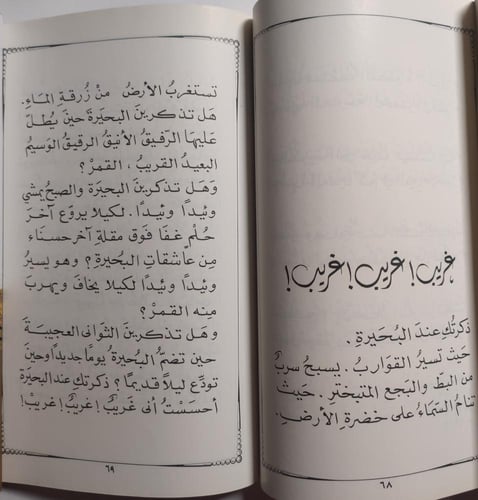 غريب! غريب! غريب!
ذكرتُكِ عندَ البُحيرةِ .
حيثُ تسيرُ القواربُ . يسبحُ سربٌ
من البطِّ والبجعِ المتبخترِ . حَيثُ
تنامُ السَّمَاءُ على خضرةِ الأرضِ .
٦٨
تستغربُ الأرضُ من زُرقةِ الماءِ .
هَل تذكرينَ البحيرةَ حينَ يُطلّ
عليهَا الرّفيقُ الأنيقُ الرقيقُ الوَسيمُ
البعيدُ القريبُ ، القمرْ؟
وَهَل تذكرينَ البحيرة والصبحُ يمشي
وئيدًا وئيدًا . لكيلا يروّع آخرَ
حلْم غفَا فوق مقلةِ آخر حسنَاءَ
مِن عَاشقاتِ البُحيرةِ ؟ وهو يسيرُ
وئيدًا وئيدًا لكيلا يخافَ ويهربَ
مِنه القمرْ؟
وهَل تذكرينَ الثواني العجيبَةَ
حين تضمُّ البحيرةُ يومًا جديدًا وحينَ
تودّع ليلاً قديمًا ؟ ذكرتكِ عند البحيرَة
أحسَسْتُ أنى غريبٌ! غريبٌ! غريبْ!
٦٩